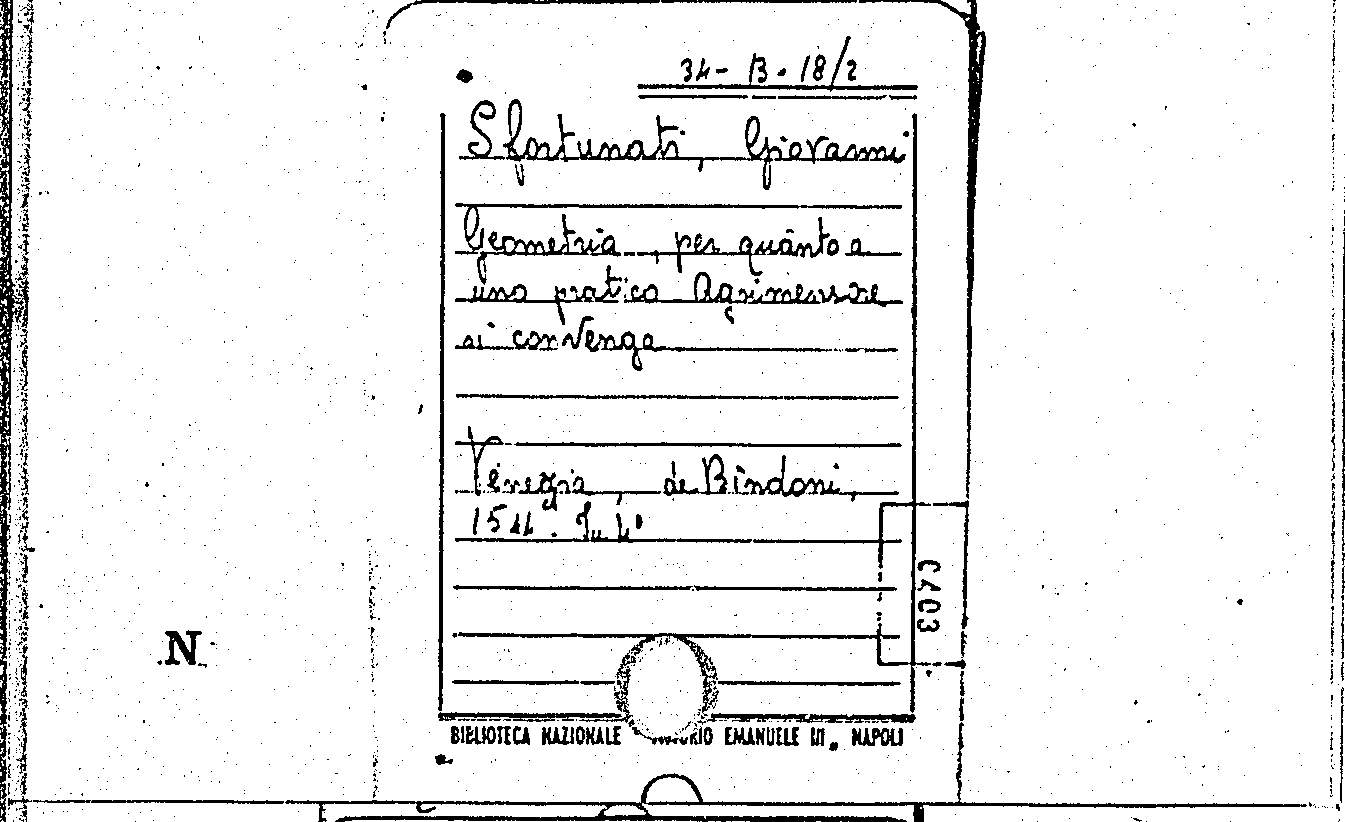 34-B.18/2
Sfortunati, Giovanni
Geometria, per quanto a
uno pratico Agrimensore
si convenga
Venezia, de Bindoni,
1544. In 4°
C403
N
BIBLIOTECA NAZIONALE EMANUELE III. NAPOLI